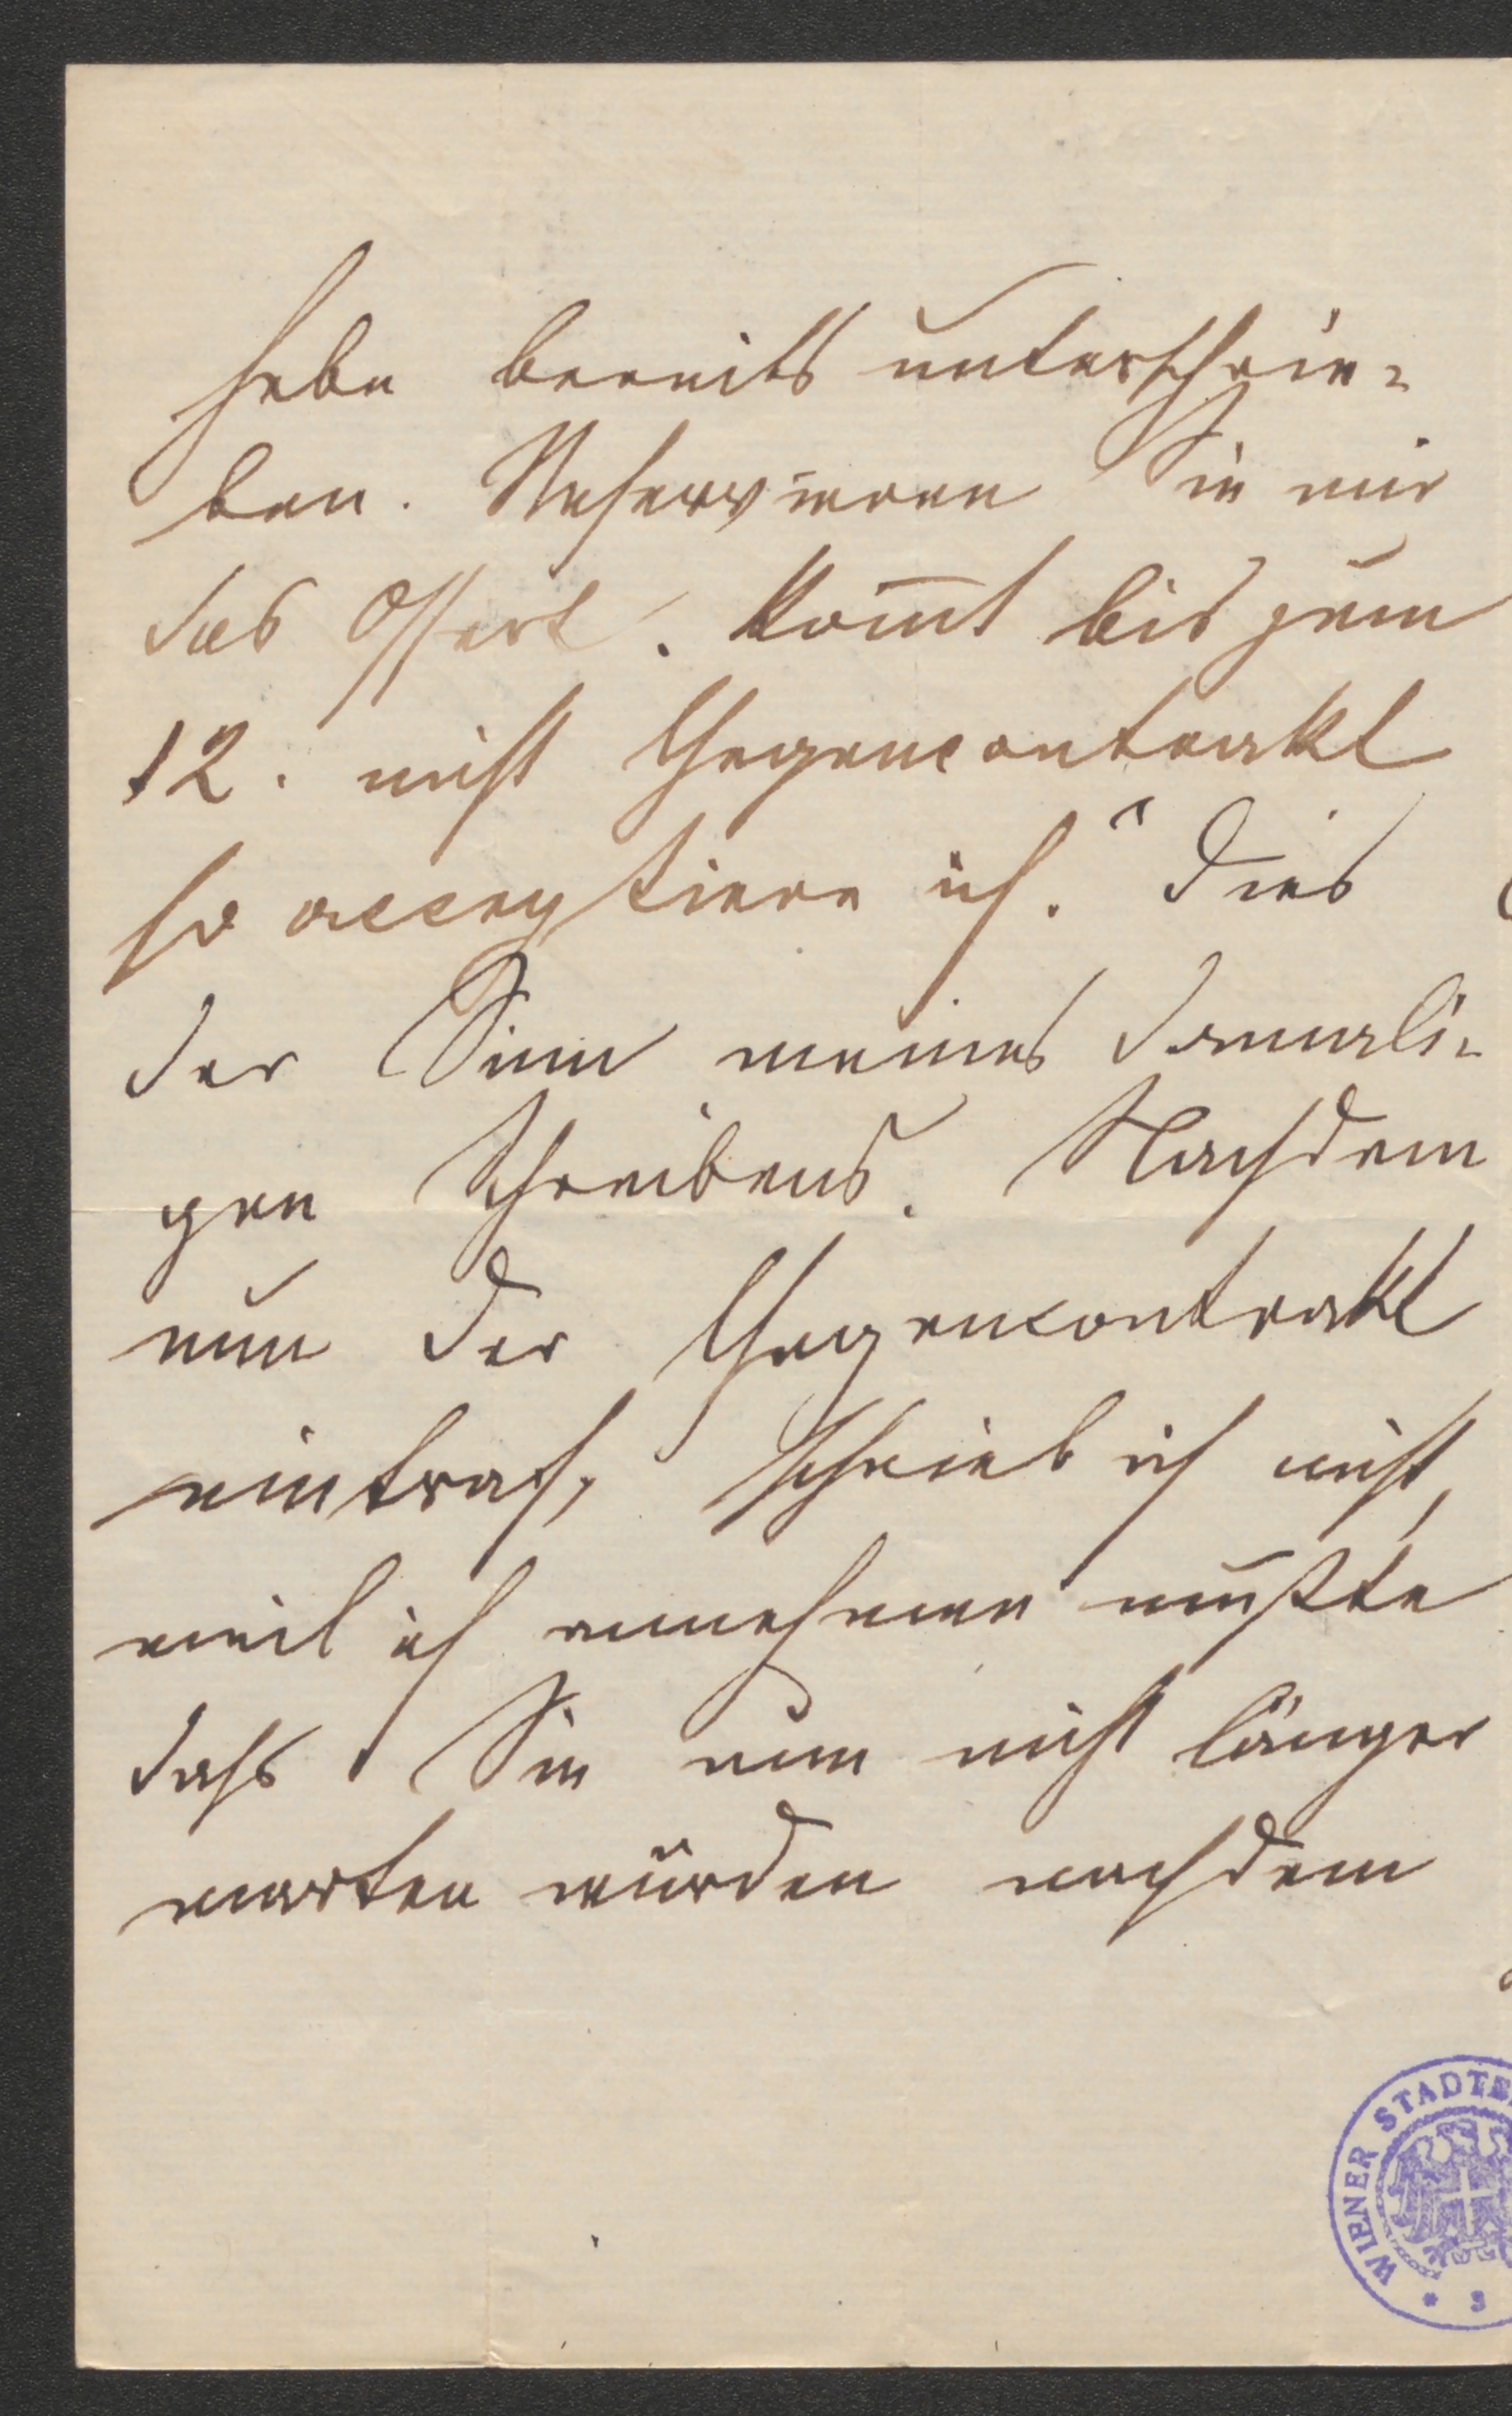 habe bereits unterschrie-
ben. Reservieren Sie mir
das Offert. Kom̄t bis zum
12. nicht Gegencontrakt
so acceptiere ich." Dies
der Sinn meines damali-
gen Schreibens. Nachdem
nun der Gegencontrakt
eintraf, schrieb ich nicht,
weil ich annehmen mußte
dass Sie nun nicht länger
warten würden nachdem
WIENER STADTB